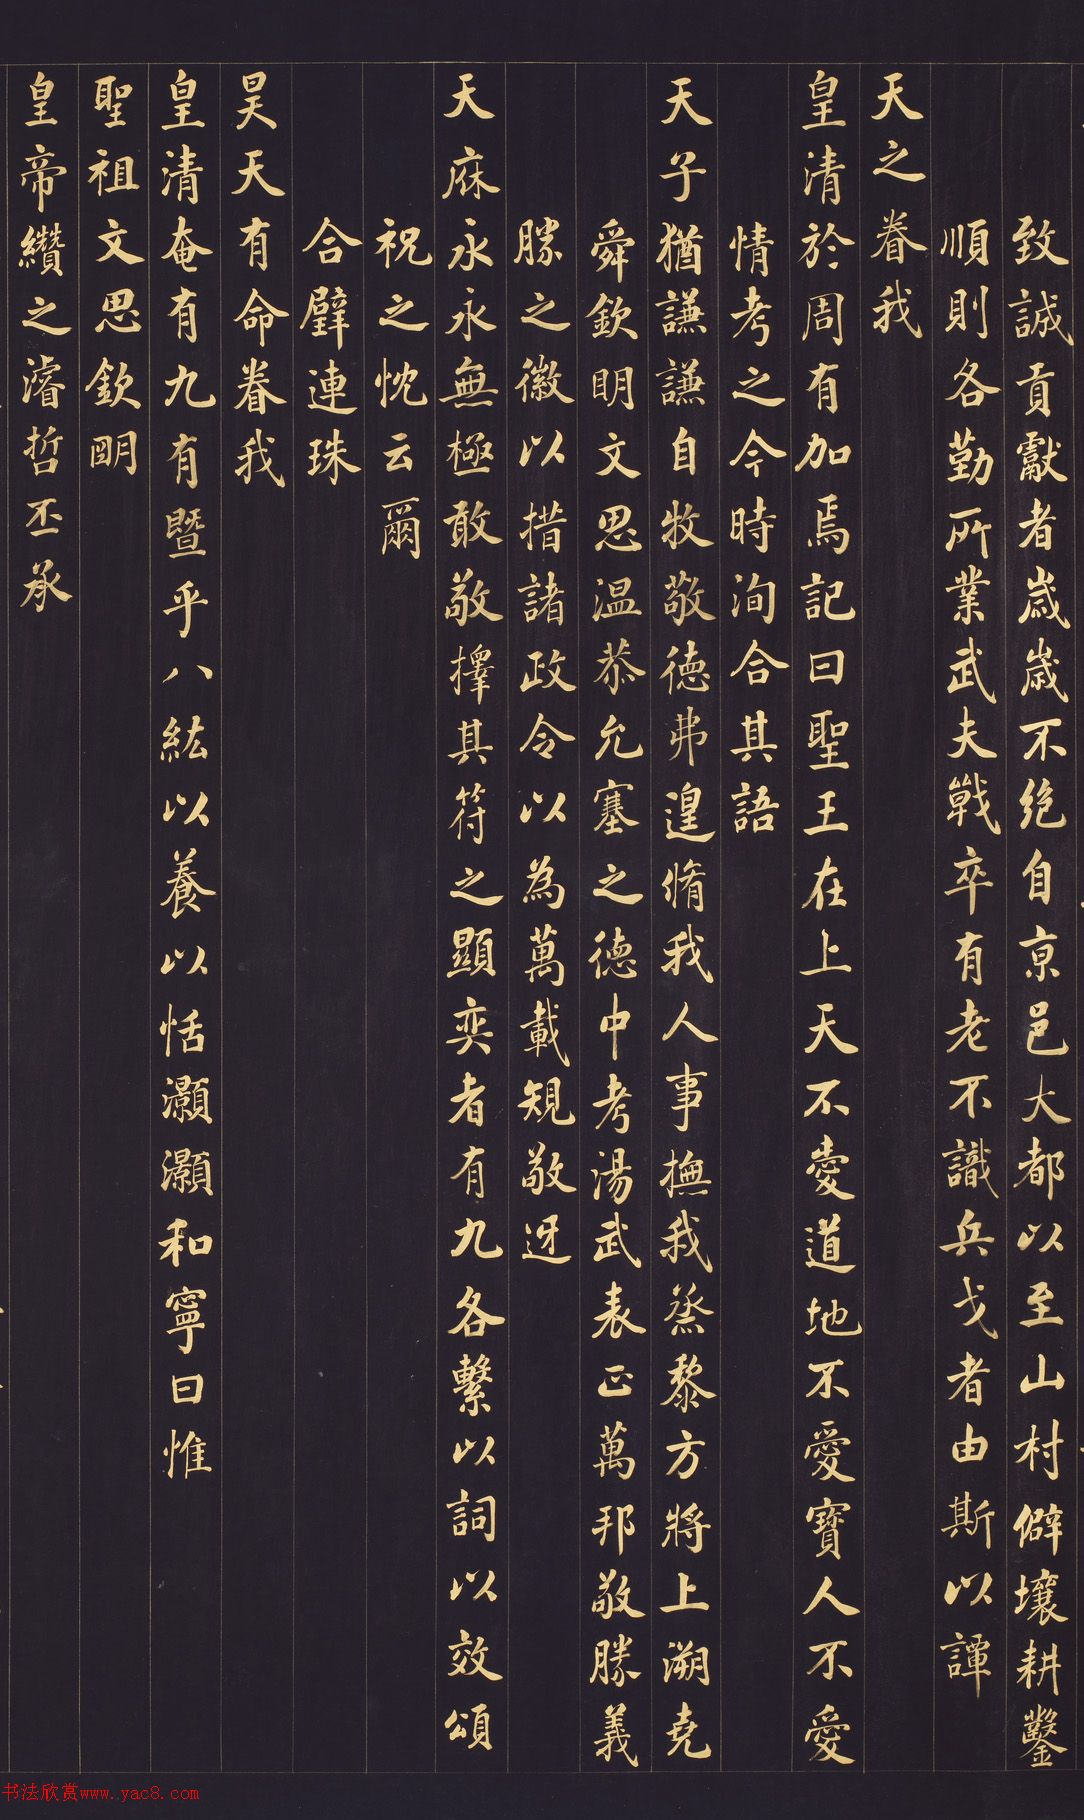 致誠貢獻者歲歲不絕自京邑大都以至山村僻壤耕鑿
順則各勤所業武夫戰卒有老不識兵戈者由斯以譚
天之眷我
皇清於周有加焉記曰聖王在上天不愛道地不愛寶人不愛
情考之今時洵合其語
天子猶謙謙自牧敬德弗遑脩我人事撫我蒸黎方將上溯堯
舜欽明文思溫恭允塞之德中考湯武表正萬邦敬勝義
勝之徽以措諸政令以為萬載規敬迓
天庥永永無極敢敬擇其符之顯奕者有九各繫以詞以效頌
祝之忱云爾
合璧連珠
昊天有命眷我
皇清奄有九有暨乎八紘以養以恬灝灝和寧曰惟
聖祖文思欽明
皇帝纘之濬哲丕承
书法欣赏www.yac8.com